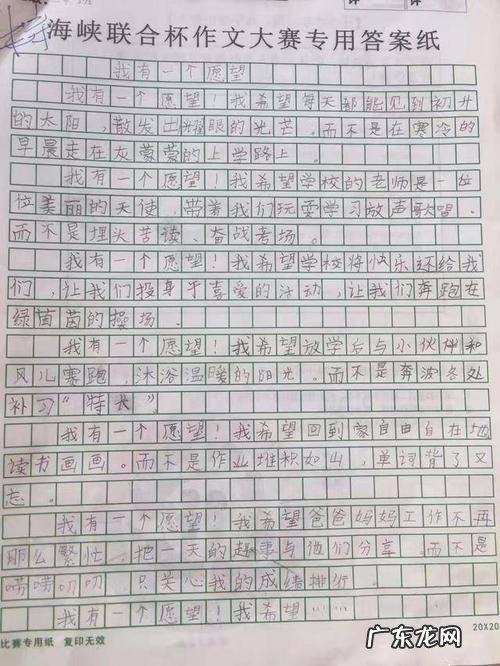 海峡联合杯作文大赛专用答案纸
我有一个愿望
我有一个愿望！我希望每天都能见到初升
的太阳，散发出耀眼的光芒。而不是在寒冷的
早晨走在灰蒙蒙的上学路上。
我有一个愿望！我希望学校的老师是一位
位美丽的天使，带着我们玩耍学习放声歌唱。
而不是埋头苦读、奋战考场。
我有一个愿望！我希望学校将快乐还给我
们，让我们投身于喜爱的活动，让我们奔跑在
绿茵茵的操场。
我有一个愿望！我希望放学后与小伙伴和
风儿赛跑，沐浴温暖的阳光。而不是奔波各处
补习“特长”
我有一个愿望！我希望回到家自由自在地
读书画画。而不是作业堆积如山，单词背了又
忘。
我有一个愿望！我希望爸爸妈妈工作不再
那么繁忙，把一天的趣事与他们分享。而不是
唠唠叨叨 只关心我的成绩排行
我有一个愿望！我希望……
比赛专用纸 复印无效
20X20
广东龙网